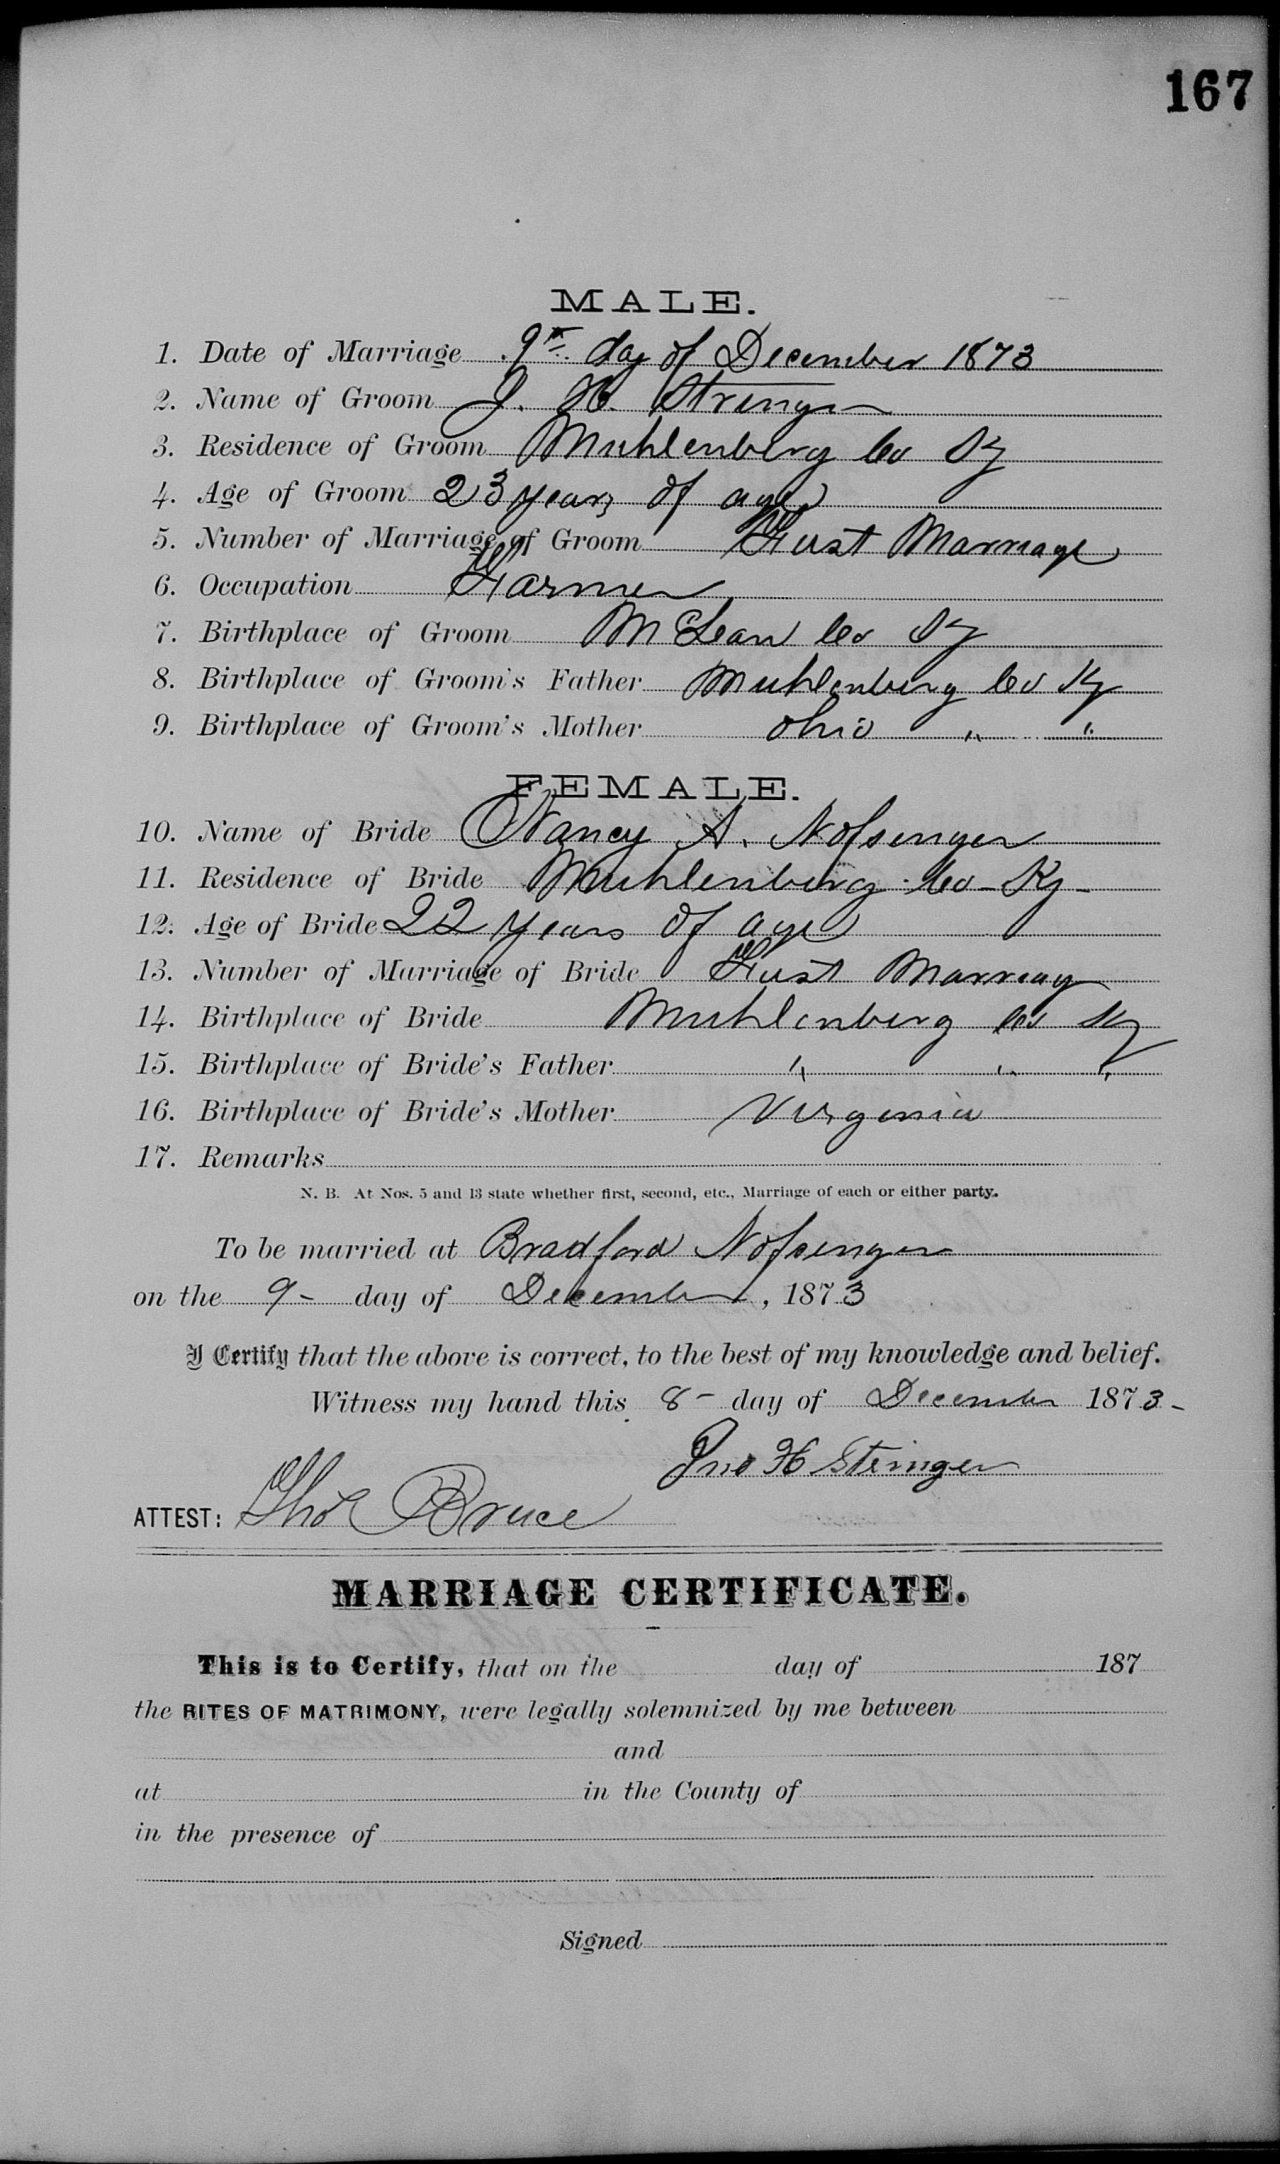 167
MALE.
1. Date of Marriage 9th day of December 1873
2. Name of Groom J. H. Stringer
3. Residence of Groom Muhlenberg Co Ky
4. Age of Groom 23 years of age
5. Number of Marriage of Groom First Marriage
6. Occupation Farmer
7. Birthplace of Groom McLean Co Ky
8. Birthplace of Groom's Father Muhlenberg Co Ky
9. Birthplace of Groom's Mother Ohio " "
FEMALE.
10. Name of Bride Nancy A. Nofsinger
11. Residence of Bride Muhlenberg Co - Ky -
12. Age of Bride 22 years of age
13. Number of Marriage of Bride First Marriag
14. Birthplace of Bride Muhlenberg Co Ky
15. Birthplace of Bride's Father " " "
16. Birthplace of Bride's Mother Virginia
17. Remarks
N. B. At Nos. 5 and 13 state whether first, second, etc., Marriage of each or either party.
To be married at Bradford Nofsinger
on the 9 - day of December, 1873
I Certify that the above is correct, to the best of my knowledge and belief.
Witness my hand this 8 - day of December 1873 -
Jno H Stringer
ATTEST: Tho Bruce
MARRIAGE CERTIFICATE.
This is to Certify, that on the day of 187
the RITES OF MATRIMONY, were legally solemnized by me between
and
at in the County of
in the presence of
Signed